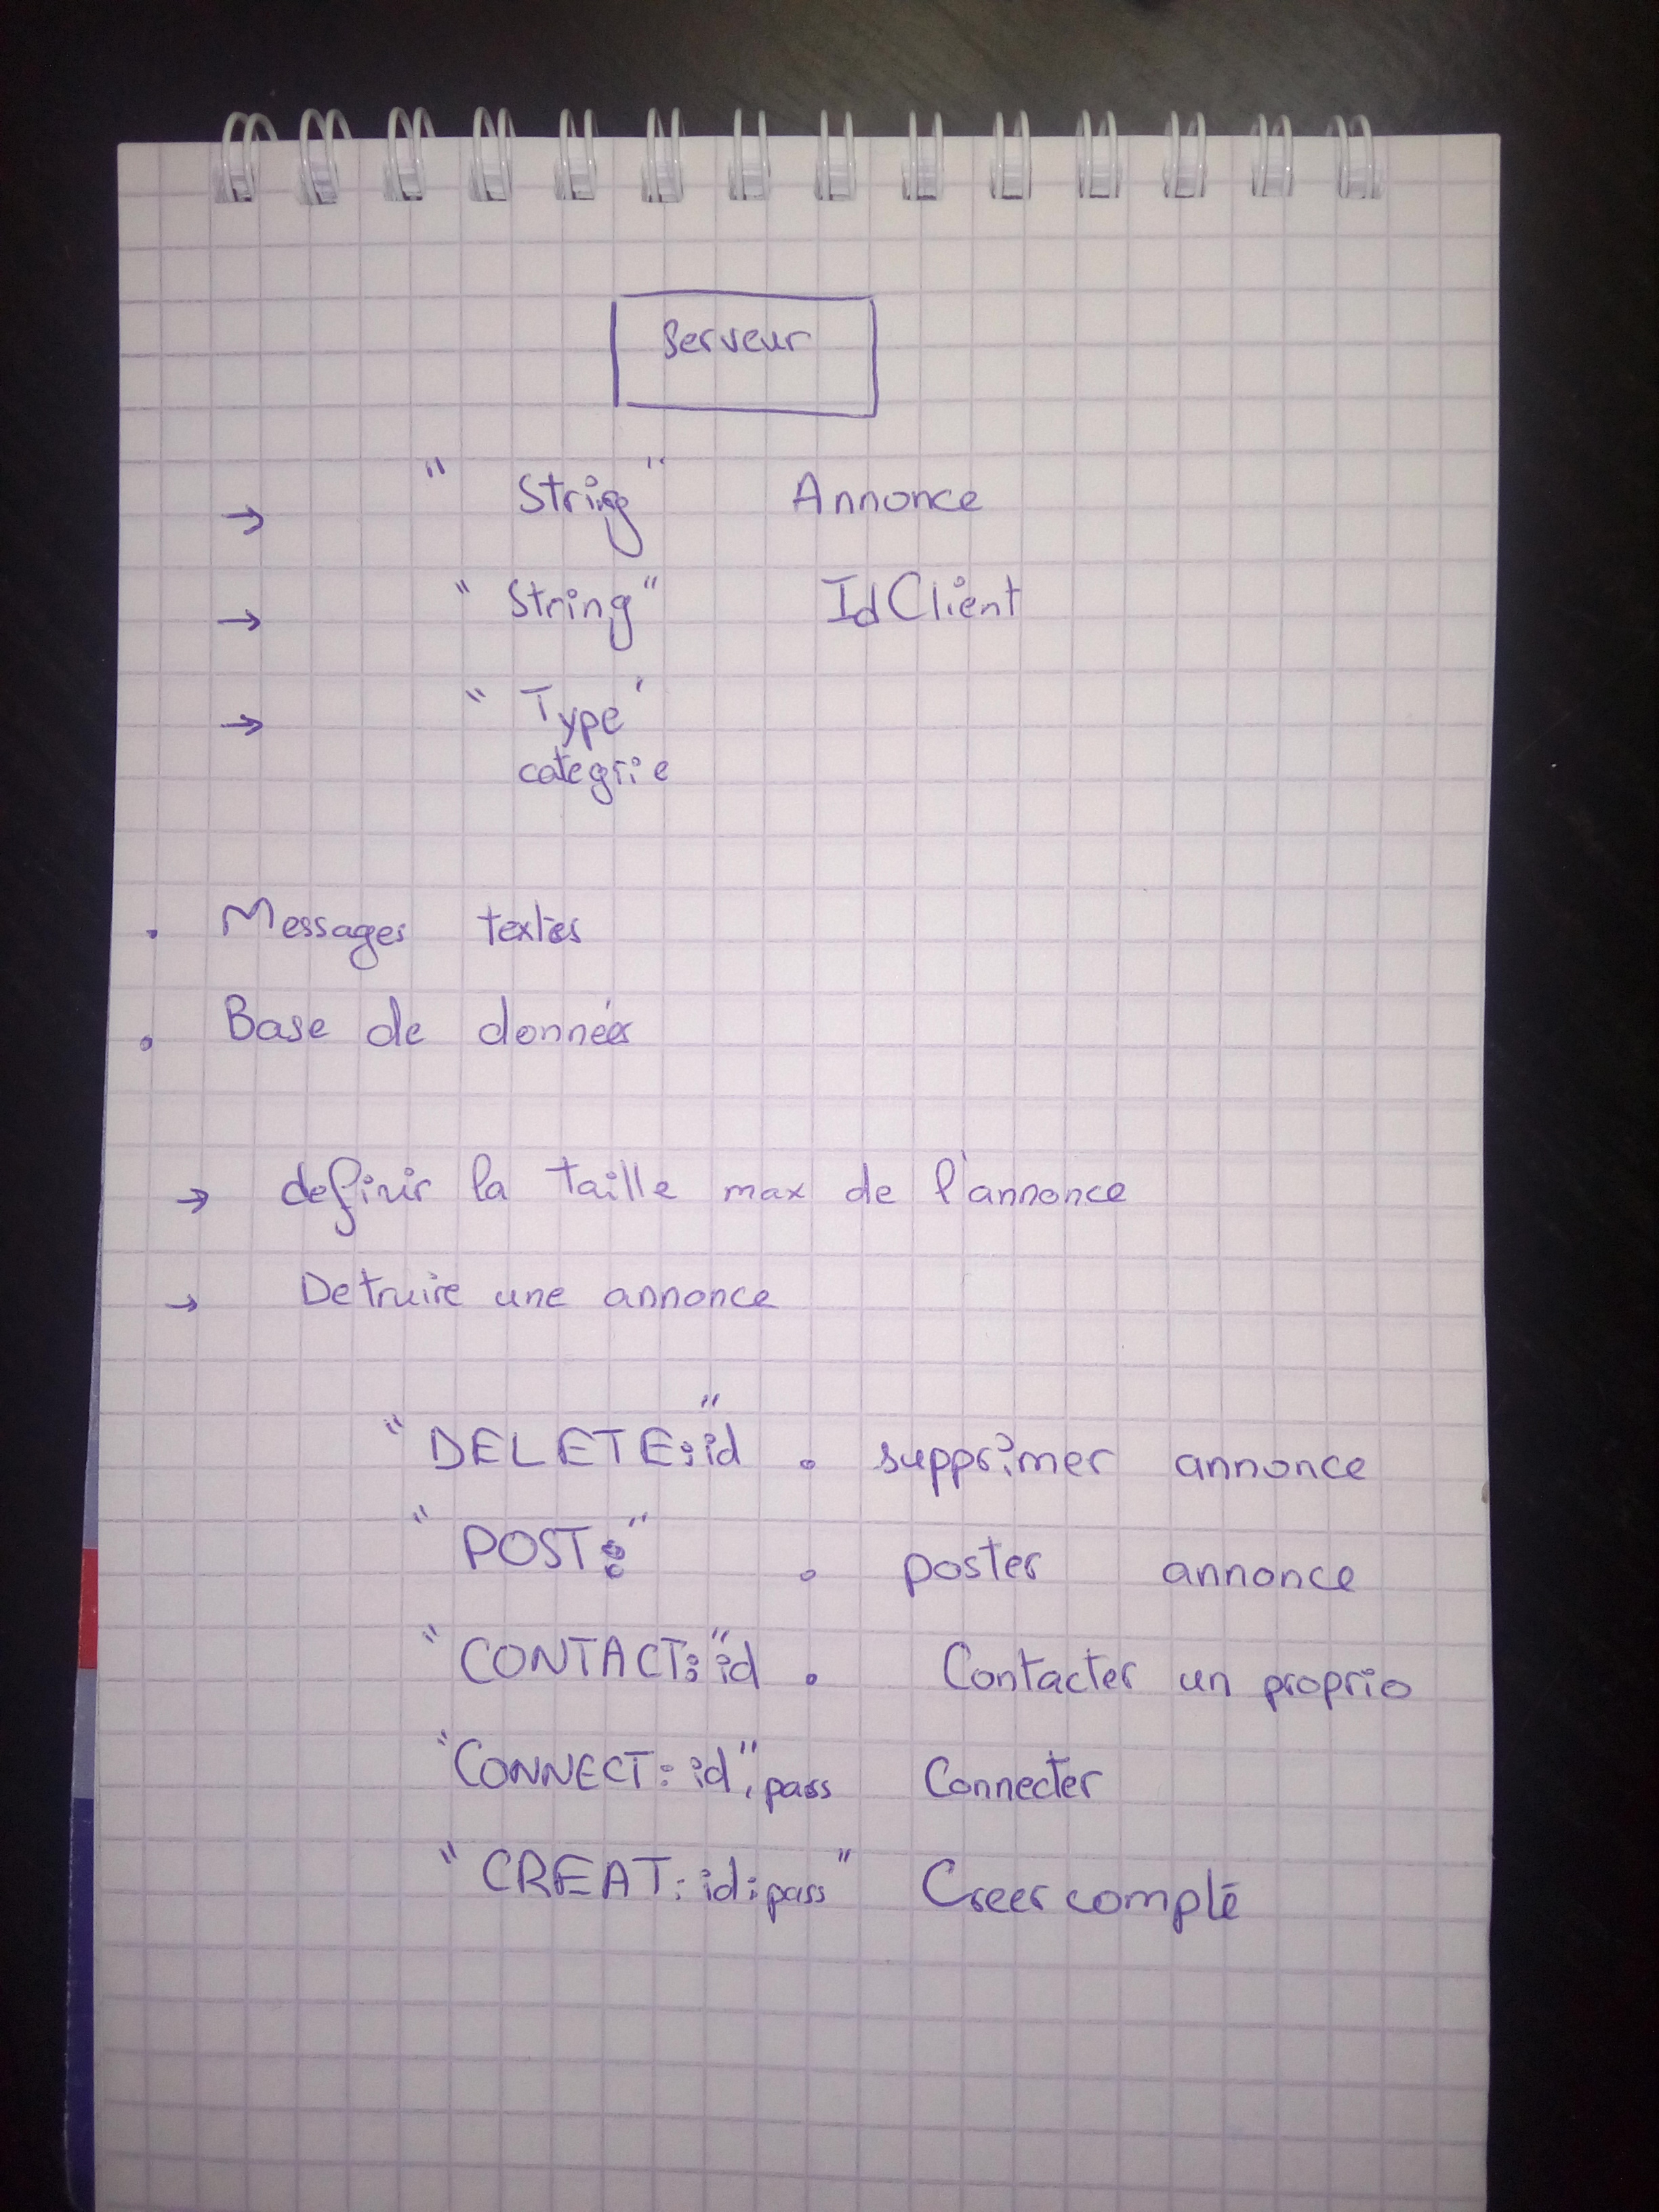 Serveur
→ "String" Annonce
→ "String" IdClient
→ "Type"
categrie
. Messages textes
. Base de données
→ definir la taille max de l'annonce
→ Detruire une annonce
"DELETE:"id . supprimer annonce
"POST:" . poster annonce
"CONTACT:"id . Contacter un proprio
"CONNECT:id";pass Connecter
"CREAT:id:pass" Creer compte